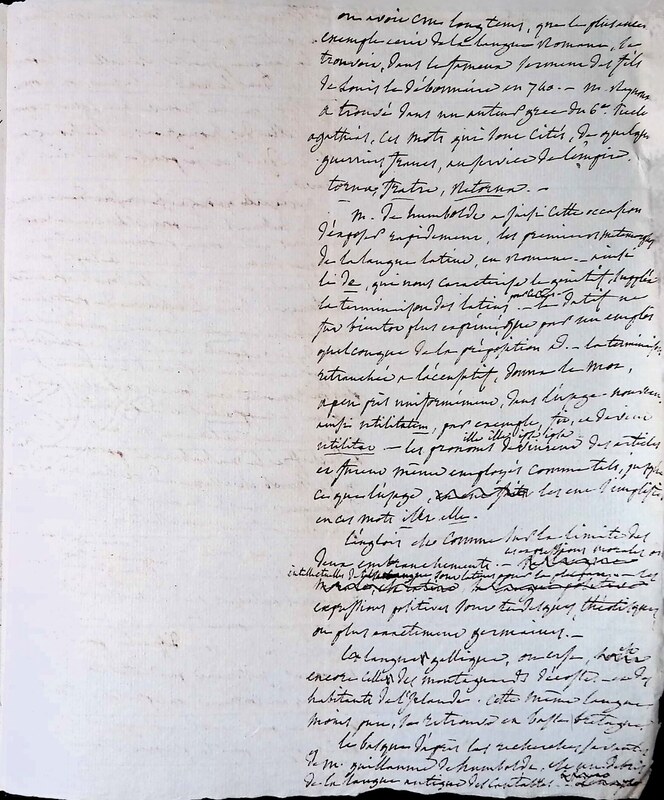 on avoit cru longtems, que le plus ancien
exemple écrit de la langue Romane, se
trouvoit, dans le fameux serment des fils
de Louis le débonnaire en 740. — M.
a trouvé dans un auteur grec du 6e siècle
agathias, ces mots qui sont cités, de quelques
guerriers francs, au service de l'empire.
torna, fratre, Retorna. —
M. de humboldt a saisi cette occasion
d'exposer rapidement, les premieres
de la langue latine, en Romane. — ainsi
le de, qui nous caracterise le génitif, supplée
la terminaison des latins — le datif ne
fut bientot plus exprimé que par un emploi
quelconque de la préposition a. — la terminaison
retranchée a l'accusatif, donna le mot,
a peu près uniformément, dans l'usage nouveau,
ainsi utilitatem, par exemple, fit, ou devint
utilitat — les pronoms ille illa ipse ipsa devinrent des articles
et furent même employés comme tels, jusqu'à
ce que l'usage, les eut
en ces mots ille illa.
l'anglois est comme sur la limite des
deux embranchements. — expressions morales ou
intellectuelles sont latines pour la plupart — les
expressions positives sont tudesques, théotisques
ou plus exactement germaines. —
La langue gallique, ou erse, est
encore celle des montagnards d'écosse — et des
habitants de l'Irlande. cette même langue
moins pure, se retrouve en basse bretagne.
le basque d'après les recherches savantes
de M. guillaume de humboldt. est un débris
de la langue antique des Cantabres.